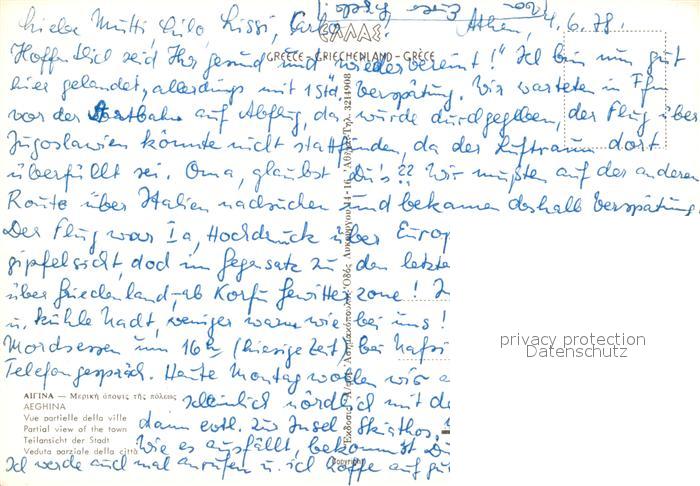 Liebe Mutti, Lilo, Lissi, Carlo, Athen, 4.6.78.
ΕΛΛΑΣ
GREECE - GRIECHENLAND - GRÈCE
Hoffentlich seid Ihr „gesund und wieder vereint!" Ich bin nun gut
hier gelandet, allerdings mit 1 Std. Verspätung. Wir warteten in Ffm
vor der Startbahn auf Abflug, da wurde durchgegeben, der Flug über
Jugoslawien könnte nicht stattfinden, da der Luftraum dort
überfüllt sei. Oma, glaubst Du's?? Wir mußten auf der anderen
Route über Italien nachsuchen und bekamen deshalb Verspätung.
Der Flug war Ia, Hochdruck über Europ
gipfelsicht, doch im Gegensatz zu den letzte
über Griechenland, ab Korfu Gewitterzone!
u. kühle Nacht, weniger warm wie bei uns!
Mordsessen um 16 (hiesige Zeit) bei
Telefongespräch. Heute Montag wollen wir
nördlich mit de
dann evtl. zur Insel Skiathos.
Wie es ausfällt, bekommst Du
Ich werde auch mal anrufen u. ich hoffe auf gu
ΑΙΓΙΝΑ — Μερική άποψις τῆς πόλεως
AEGHINA
Vue partielle della ville
Partial view of the town
Teilansicht der Stadt
Veduta parziale della città
3214908
Copyright
privacy protection
Datenschutz